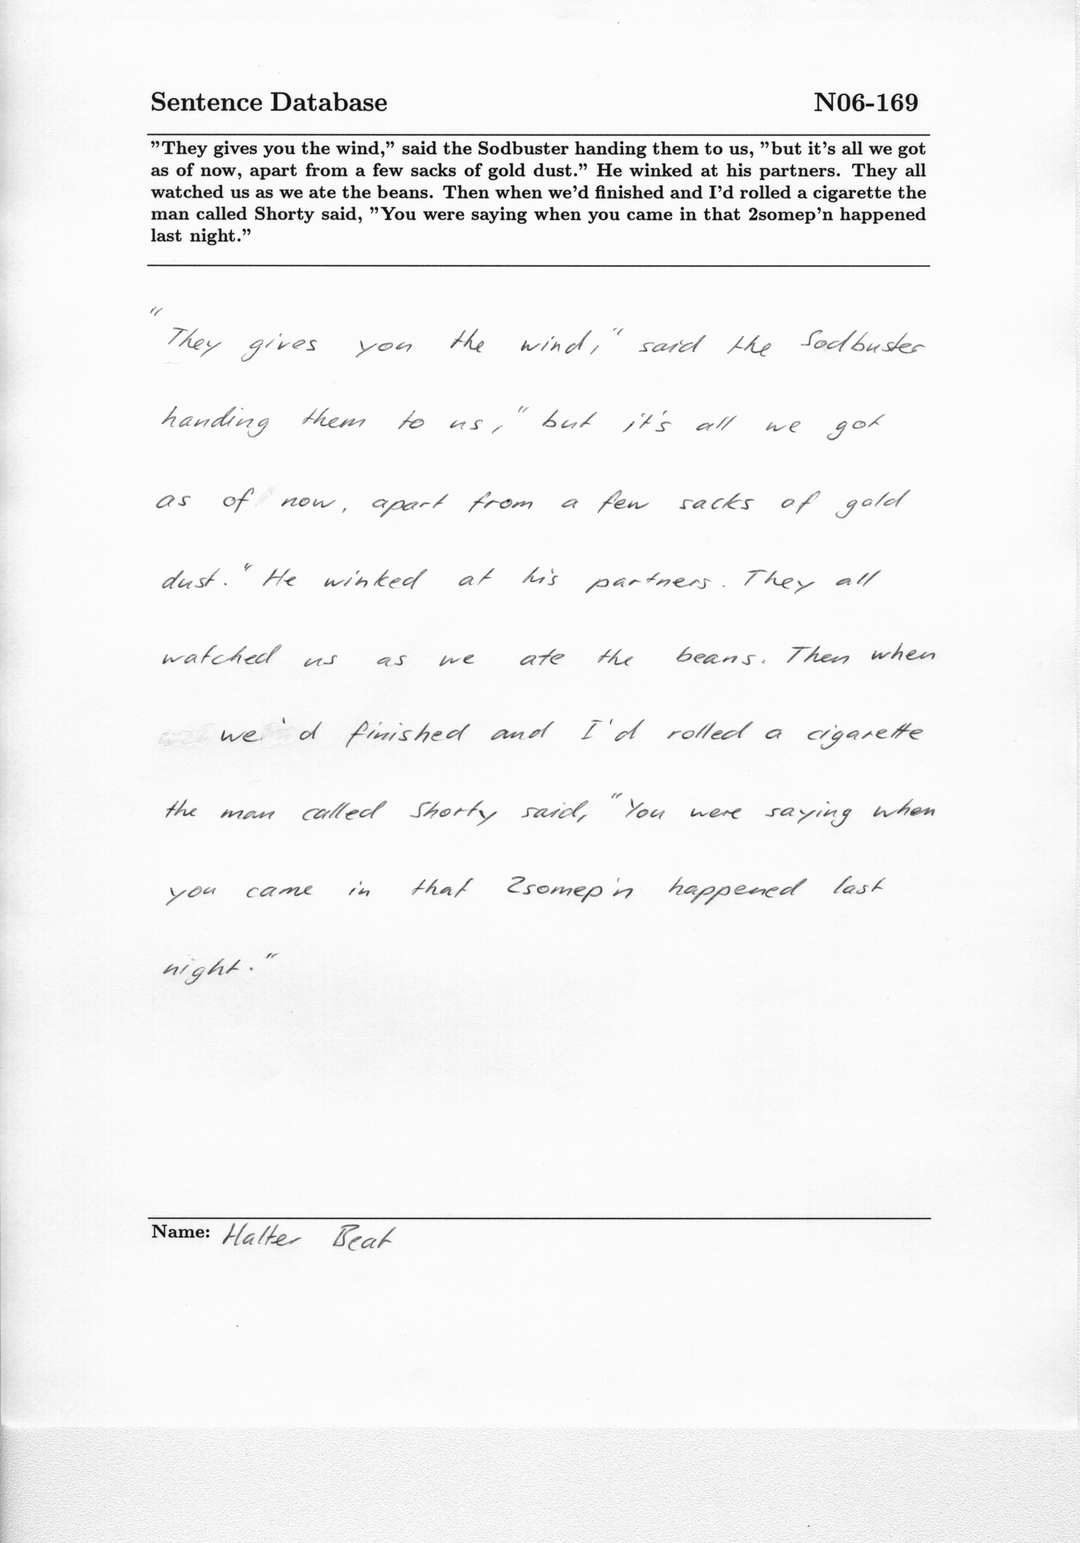 Sentence Database N06-169
"They gives you the wind," said the Sodbuster handing them to us, "but it's all we got
as of now, apart from a few sacks of gold dust." He winked at his partners. They all
watched us as we ate the beans. Then when we'd finished and I'd rolled a cigarette the
man called Shorty said, "You were saying when you came in that 2somep'n happened
last night."
"They gives you the wind," said the Sodbuster
handing them to us, "but it's all we got
as of now, apart from a few sacks of gold
dust." He winked at his partners. They all
watched us as we ate the beans. Then when
we'd finished and I'd rolled a cigarette
the man called Shorty said, "You were saying when
you came in that 2somep'n happened last
night."
Name: Halter Beat